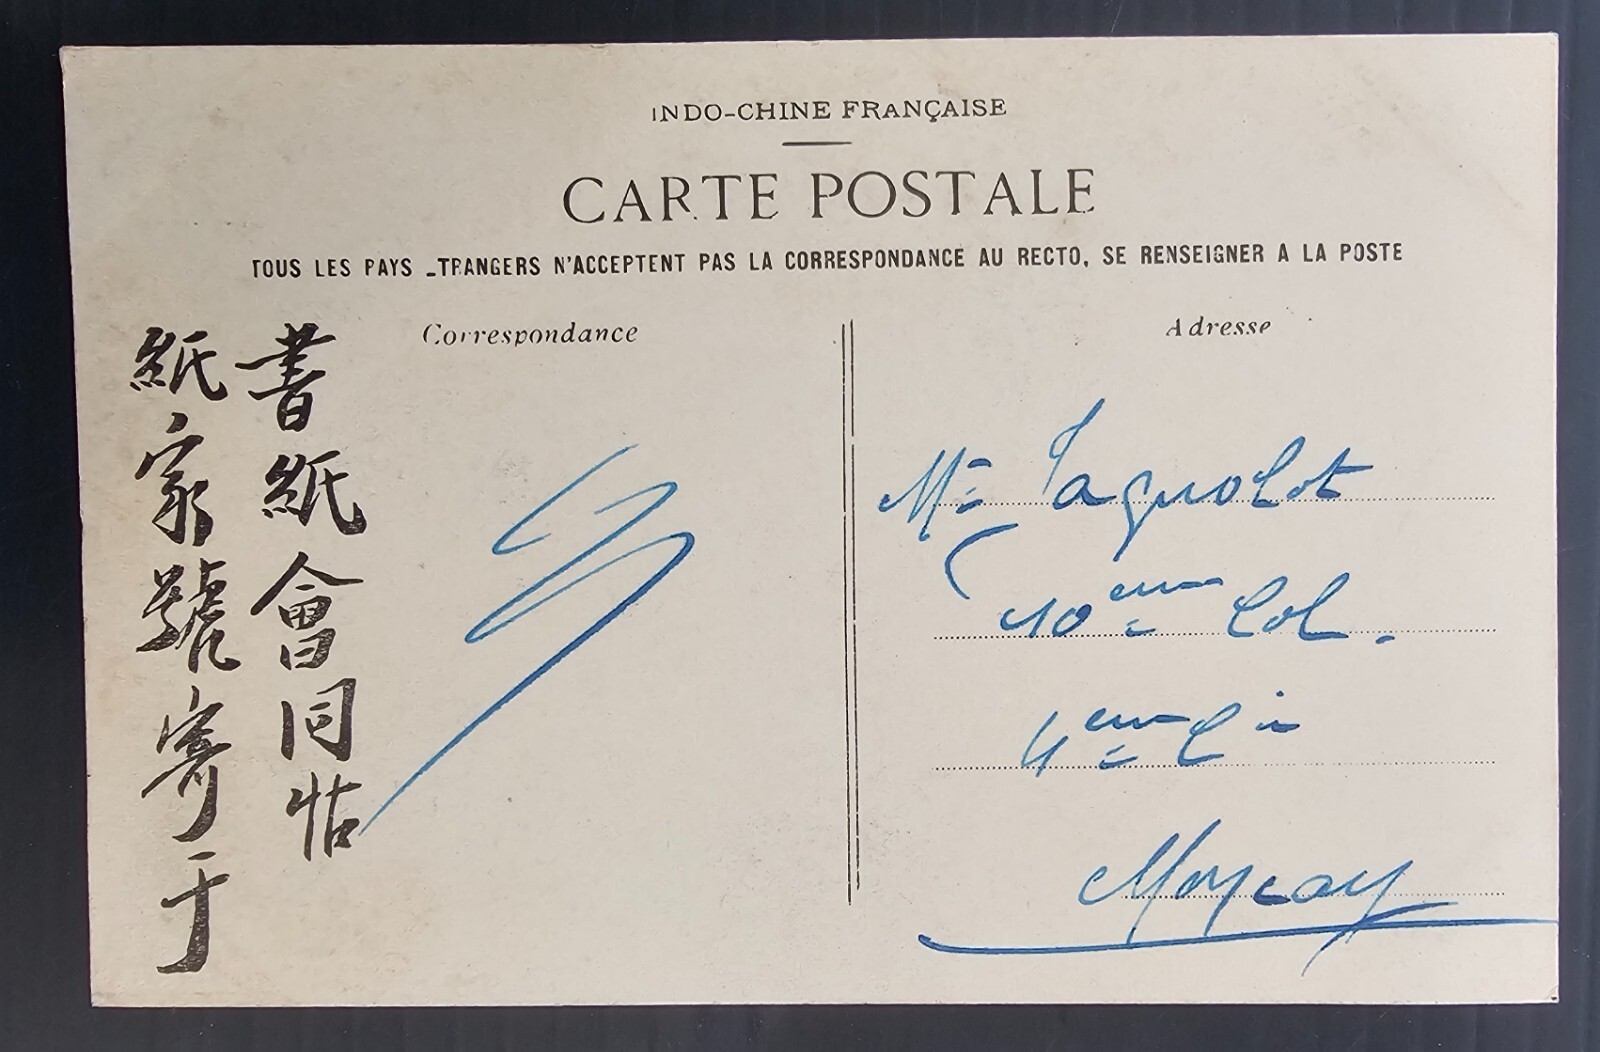 INDO-CHINE FRANÇAISE
CARTE POSTALE
TOUS LES PAYS _TRANGERS N'ACCEPTENT PAS LA CORRESPONDANCE AU RECTO, SE RENSEIGNER A LA POSTE
Correspondance
書紙會同怗
紙家號寄于
Adresse
10eme Col.
4eme Cie
Moncay